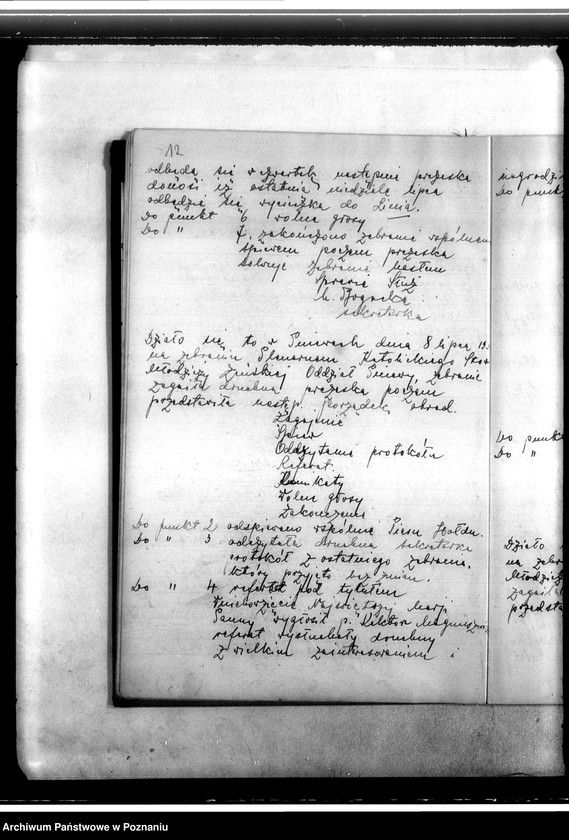 12
odbędą się w czwartek następnie prezeska
donosi iż ostatnią niedzielę lipca
odbędzie się wycieczka do Linia.
Do punkt 6 wolne głosy
Do " 7. zakończono zebranie wspólnem
śpiewem poczem prezeska
solwuje zebranie hasłem
Sprawie Służ
sekretarka
Działo się to w Pniewach dnia 8 lipca 19.
na zebraniu Plenarnem Katolickiego Stow
Młodzieży Żeńskiej Oddział Pniewy, zebranie
zagaiła druchna prezeska poczem
przedstawiła następ. porządek obrad.
Zagajenie
Śpiew
Odczytanie protokółu
Referat.
Komunikaty
Wolne głosy
Zakończenie
Do punkt 2 odśpiewano wspólnie Pieśń Hołdu.
Do " 3 odczytała druchna sekretarka
protokół z ostatniego zebrania,
który przyjęto bez zmian.
Do " 4 referat pod tytułem
Wniebowzięcie Najświętszej Marji
Panny" wygłosił p. Wiktor
referat wysłuchały druchny
z wielkim zainteresowaniem i
nagrodzi
Do punkt
Do punkt
Do "
Działo
na zebr
Młodzież
zagaiła
przedsta
Archiwum Państwowe w Poznaniu